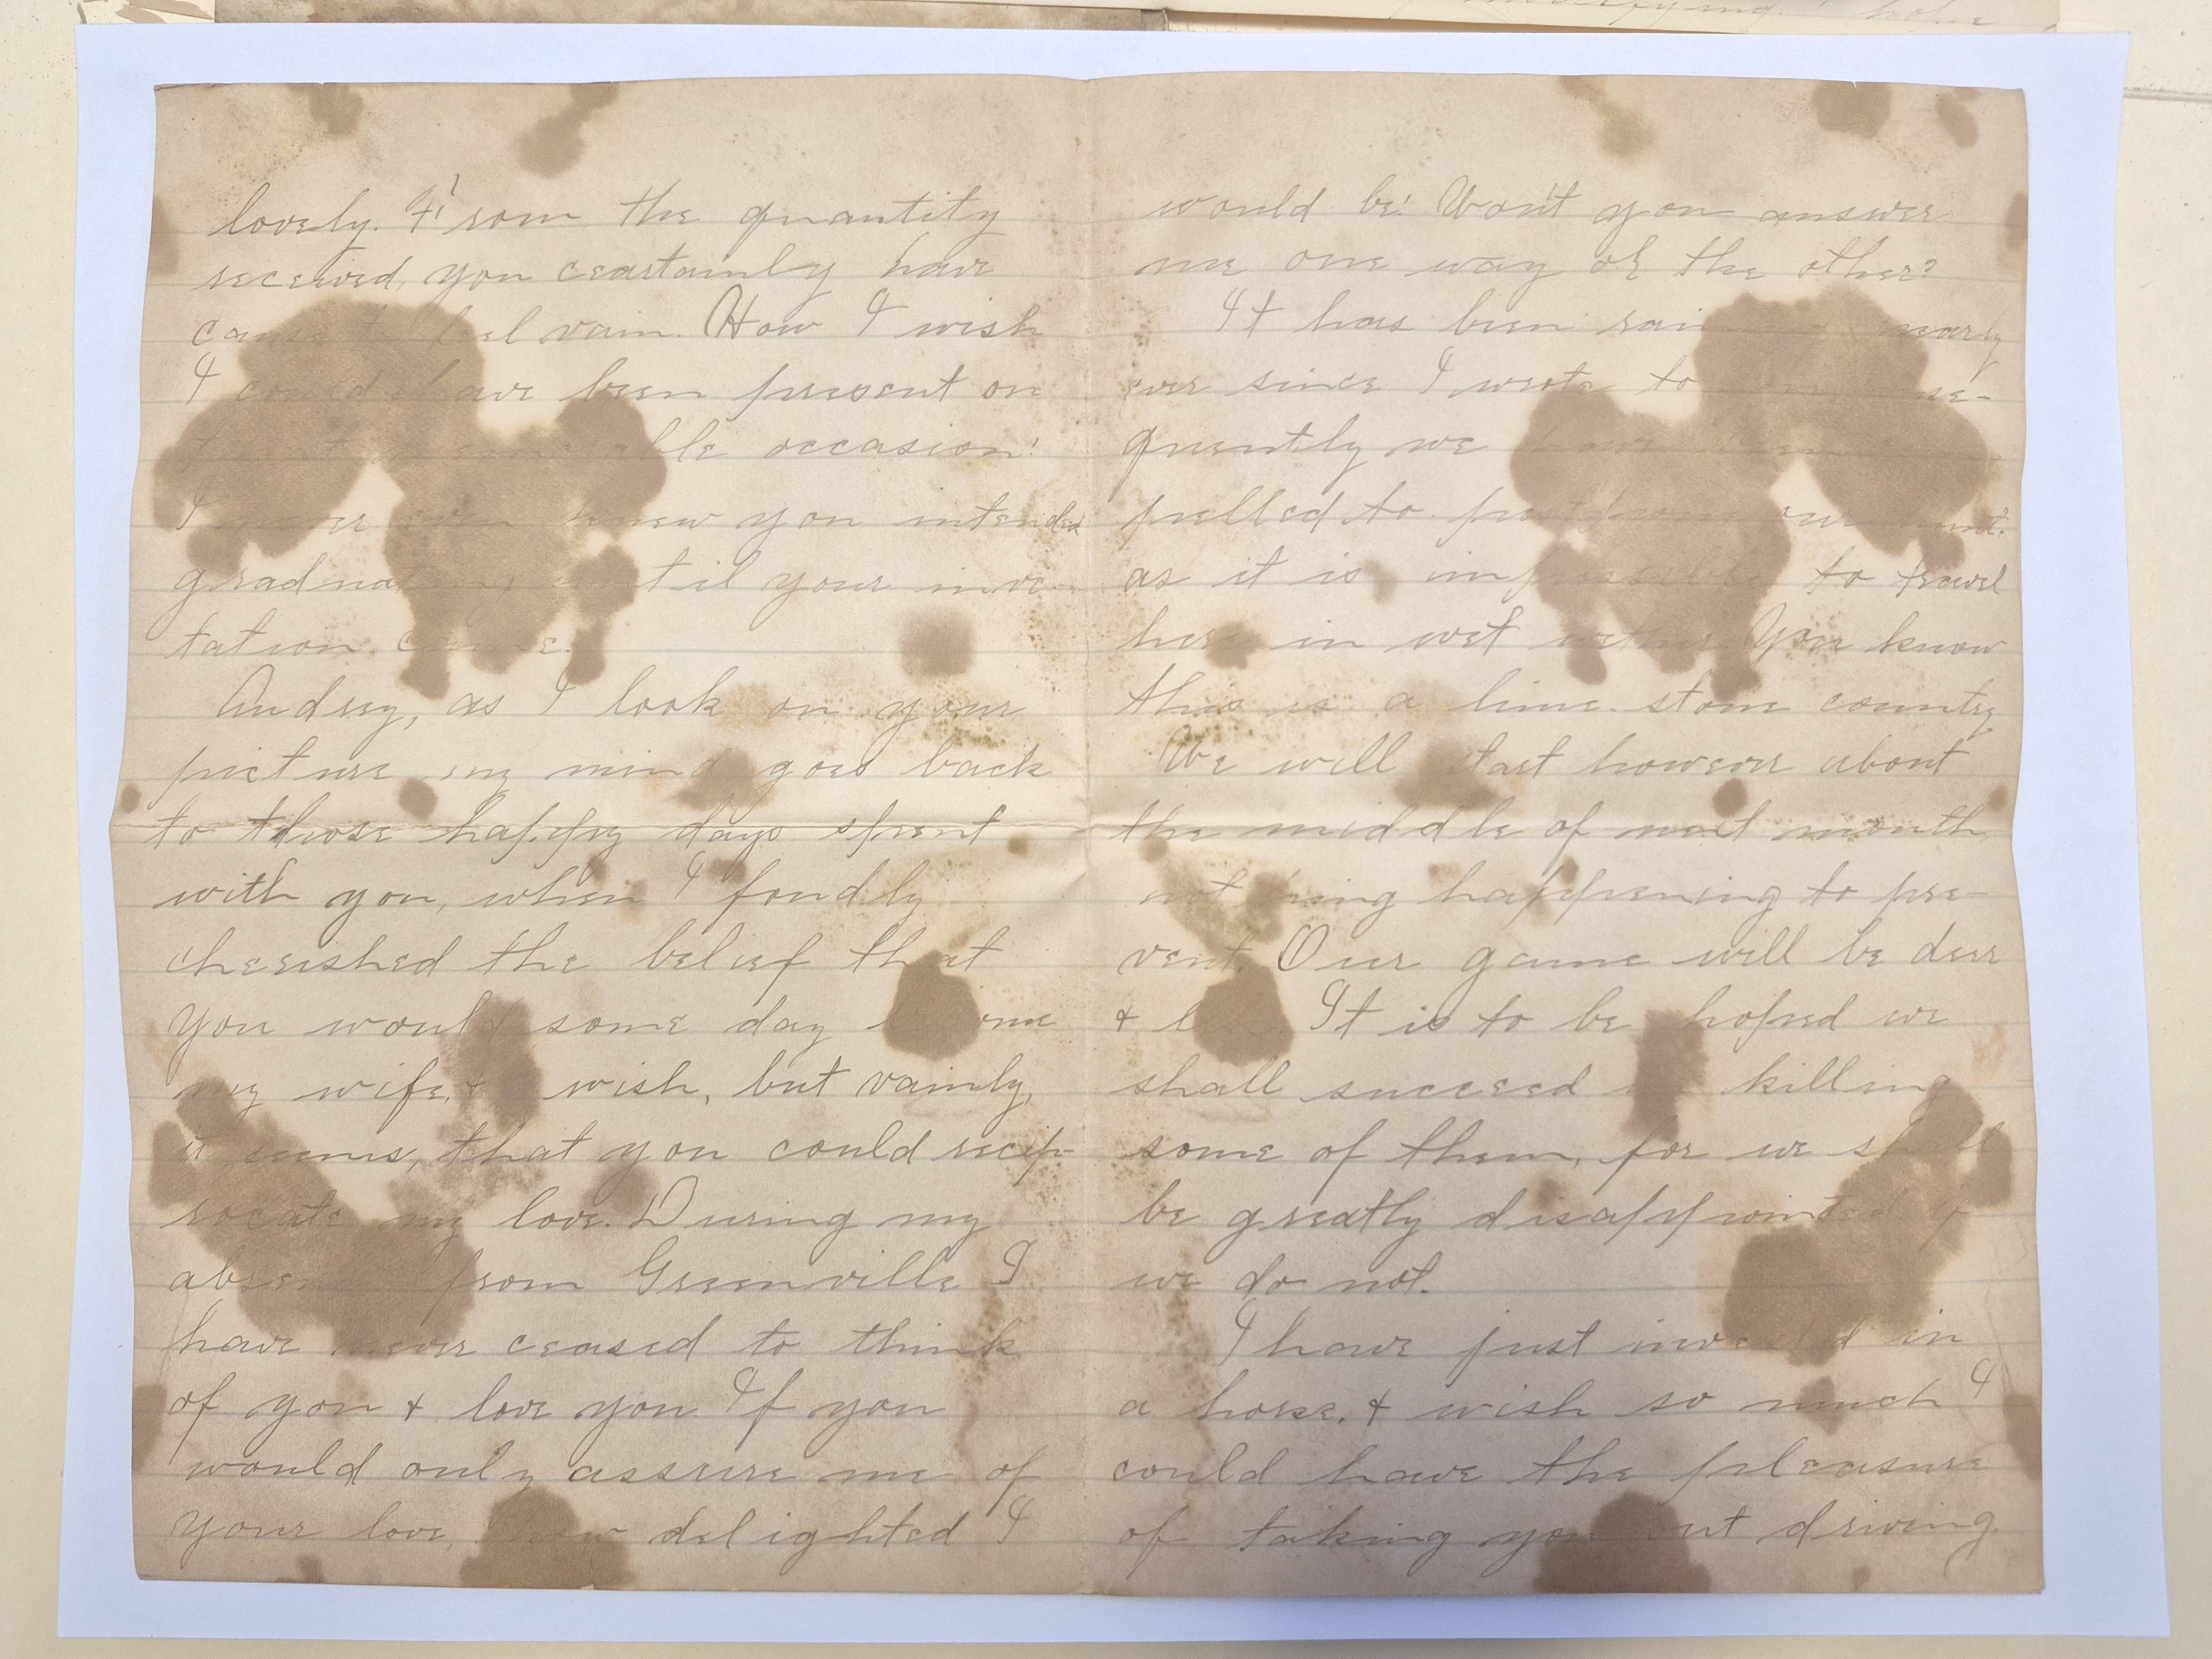 lovely. From the quantity
received, you ceartainly have
cause to feel vain. How I wish
I could have been present on
that memorable occasion!
I never even knew you intended
graduating until your invi-
tation came.
Audrey, as I look on your
picture my mind goes back
to those happy days spent
with you, when I fondly
cherished the belief that
you would some day become
my wife, & wish, but vainly,
it seems, that you could recip-
rocate my love. During my
absence from Greenville I
have never ceased to think
of you & love you. If you
would only assure me of
your love, how delighted I
would be! Won't you answer
me one way or the other?
It has been raining nearly
ever since I wrote to
quently we have been
pelled to our hunt.
as it is impossible to travel
here in wet You know
this is a lime stone country
We will start however about
the middle of next month,
not hing happening to pre-
vent. Our game will be deer
& It is to be hoped we
shall succeed in killing
some of them, for we shall
be greatly disappointed if
we do not.
I have just invested in
a horse, & wish so much I
could have the pleasure
of taking you out driving.